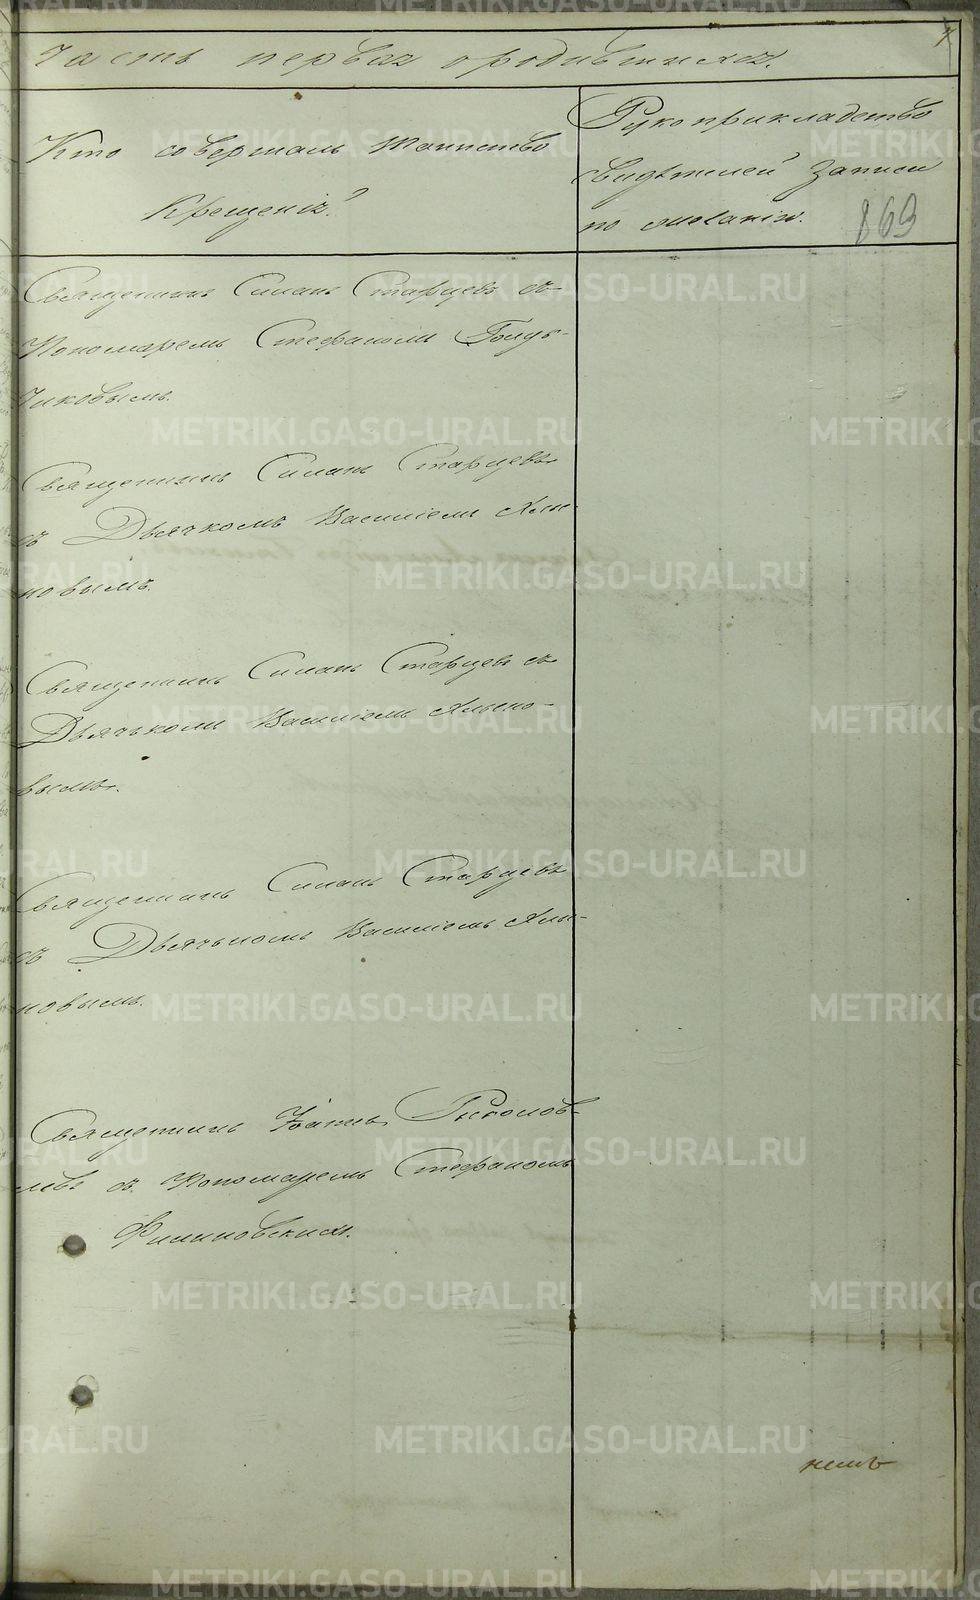 Часть первая о родившихся.
Кто совершалъ таинство
Крещенія?
Рукоприкладство
свидѣтелей записи
по желанію.
869
Священникъ Силанъ Старцевъ съ
Пономаремъ Стефаномъ Голу-
чиковымъ.
Священникъ Силанъ Старцевъ
съ Дьячкомъ Василіемъ Аль-
новымъ.
Священникъ Силанъ Старцевъ съ
Дьячькомъ Василіемъ Альено-
вымъ.
Священникъ Силанъ Старцевъ
съ Дьячькомъ Василіемъ Аль-
новымъ.
Священникъ Іоаннъ
съ Пономаремъ Стефаномъ
Филиновскимъ.
METRIKI.GASO-URAL.RU